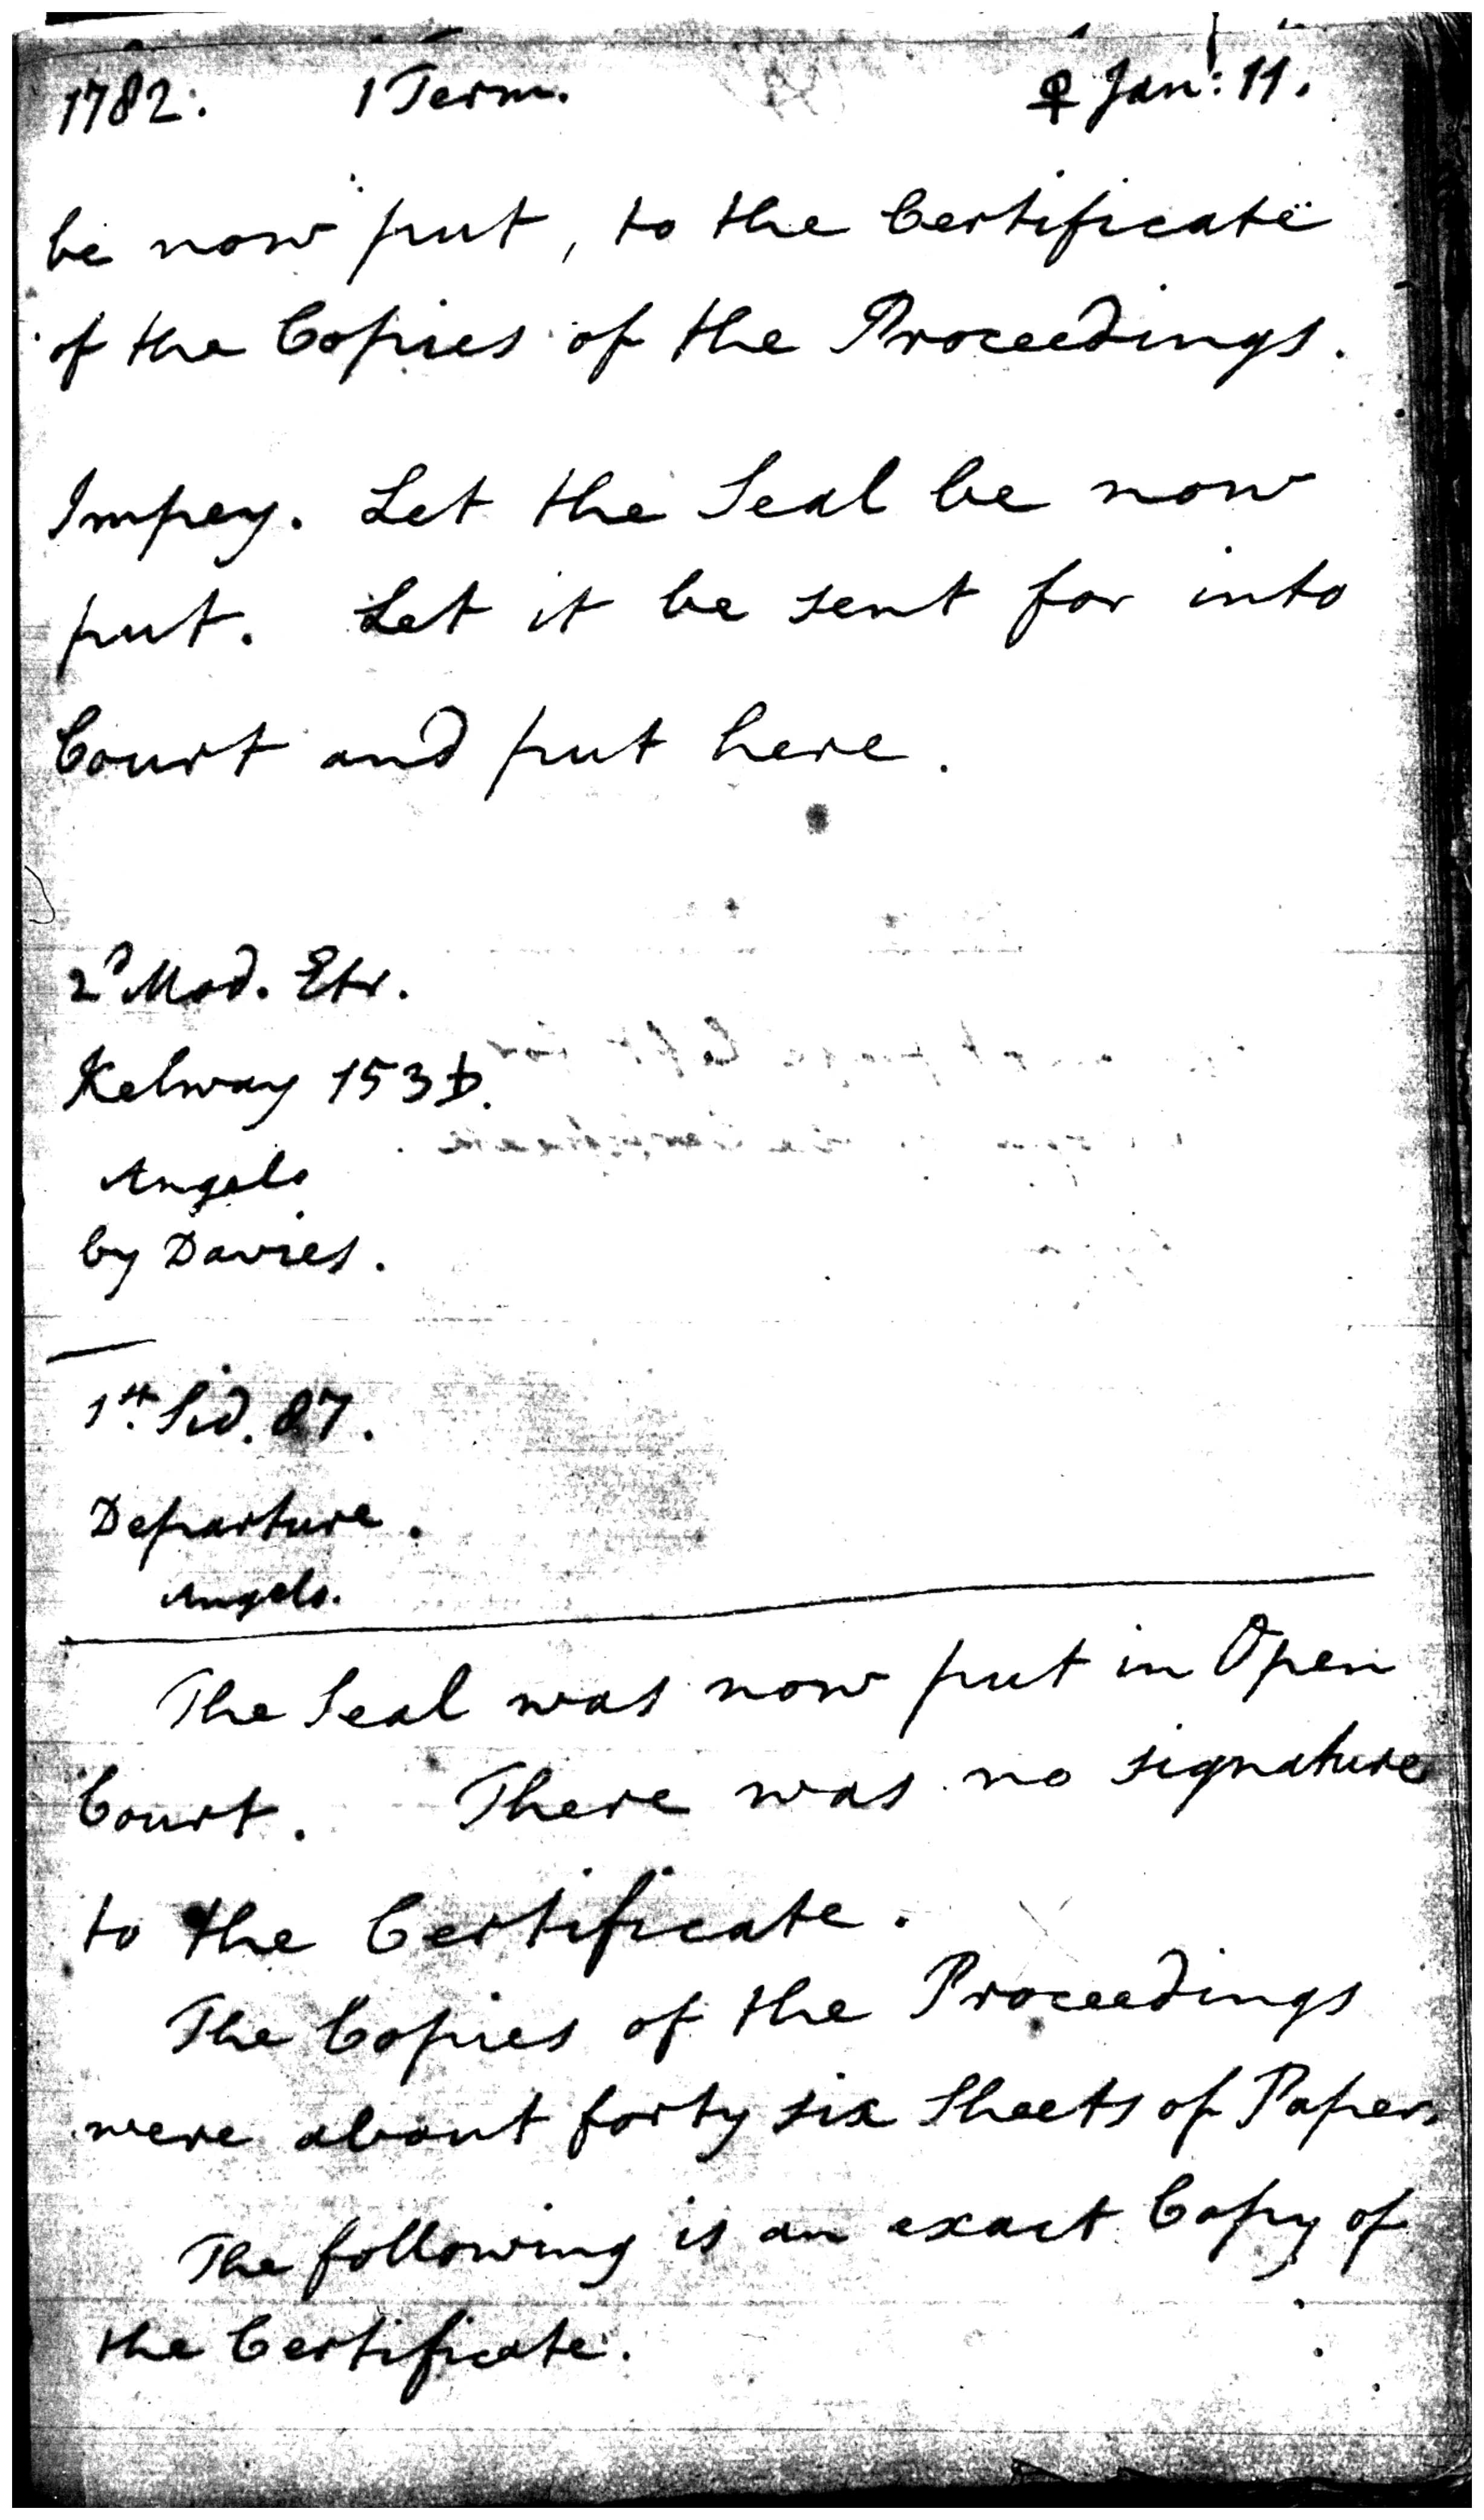 1782. 1 Term. ♀ Jan: 11.
be now put, to the Certificate
of the Copies of the Proceedings.
Impey. Let the Seal be now
put. Let it be sent for into
Court and put here.
2d Mod. Etr.
Kelway 153 b.
Angelo
by Davies.
1st. Sid. 87.
Departure.
Angelo.
The Seal was now put in Open
Court. There was no signature
to the Certificate.
The Copies of the Proceedings
were about forty six Sheets of Paper.
The following is an exact Copy of
the Certificate.